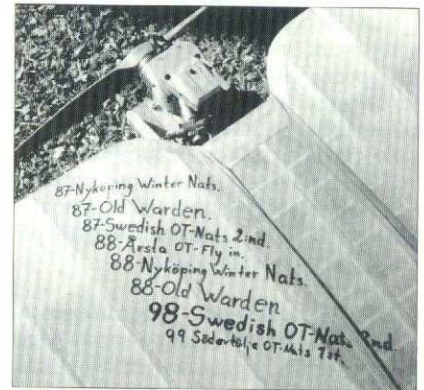 87-Nyköping Winter Nats.
87-Old Warden.
87-Swedish OT-Nats 2:nd.
88-Årsta OT-Fly in.
88-Nyköping Winter Nats.
88-Old Warden
98-Swedish OT-Nat. 2nd.
99 Södertälje OT-Nats 1st.